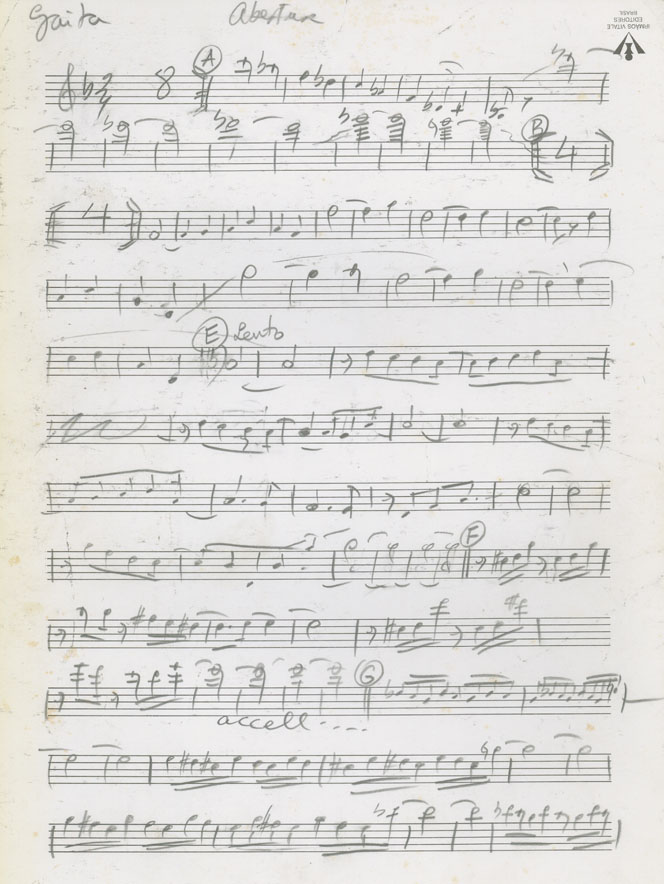 Gaita Abertura
IRMÃOS VITALE
EDITORES
BRASIL
8 A
B
4
4
E Lento
F
G
accell....